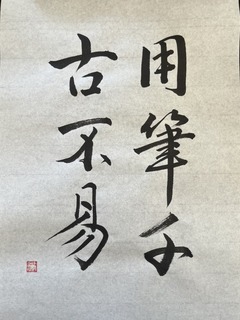 用筆千
古不易